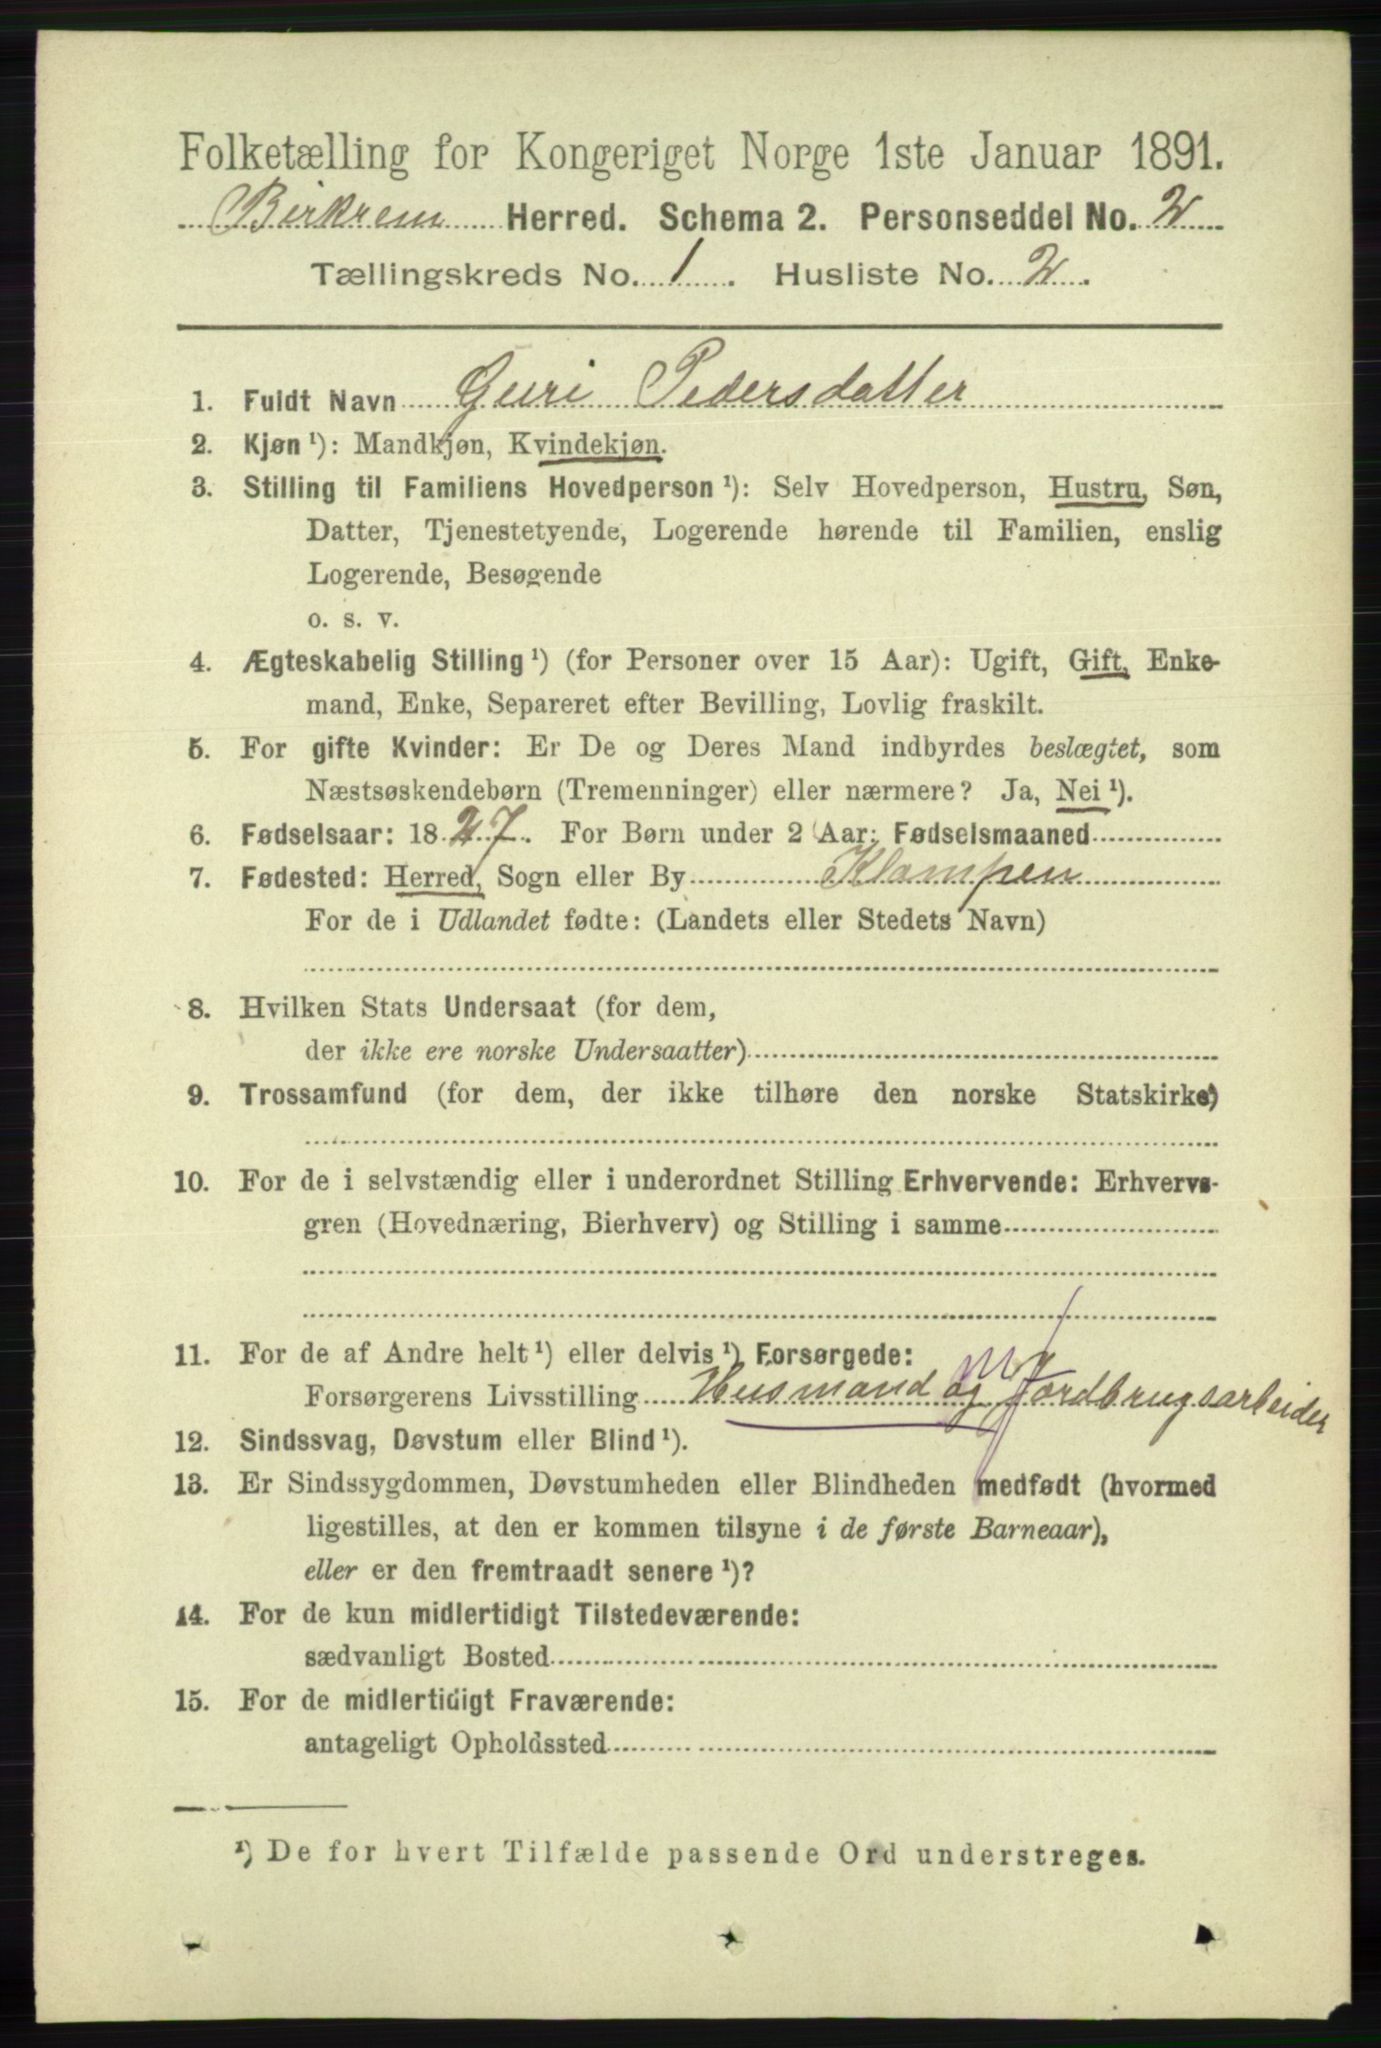 Folketælling for Kongeriget Norge 1ste Januar 1891.
Birkrem Herred. Schema 2. Personseddel No. 2
Tællingskreds No. 1. Husliste No. 2.
1. Fuldt Navn Guri Pedersdatter
2. Kjøn ¹): Mandkjøn, Kvindekjøn.
3. Stilling til Familiens Hovedperson ¹): Selv Hovedperson, Hustru, Søn,
Datter, Tjenestetyende, Logerende hørende til Familien, enslig
Logerende, Besøgende
o. s. v.
4. Ægteskabelig Stilling ¹) (for Personer over 15 Aar): Ugift, Gift, Enke-
mand, Enke, Separeret efter Bevilling, Lovlig fraskilt.
5. For gifte Kvinder: Er De og Deres Mand indbyrdes beslægtet, som
Næstsøskendebørn (Tremenninger) eller nærmere? Ja, Nei ¹).
6. Fødselsaar: 1827. For Børn under 2 Aar: Fødselsmaaned
7. Fødested: Herred, Sogn eller By Klampen
For de i Udlandet fødte: (Landets eller Stedets Navn)
8. Hvilken Stats Undersaat (for dem,
der ikke ere norske Undersaatter)
9. Trossamfund (for dem, der ikke tilhøre den norske Statskirke)
10. For de i selvstændig eller i underordnet Stilling Erhvervende: Erhvervs-
gren (Hovednæring, Bierhverv) og Stilling i samme
11. For de af Andre helt ¹) eller delvis ¹) Forsørgede:
Forsørgerens Livsstilling Husmand og Jordbrugsarbeider
12. Sindssvag, Døvstum eller Blind ¹).
13. Er Sindssygdommen, Døvstumheden eller Blindheden medfødt (hvormed
ligestilles, at den er kommen tilsyne i de første Barneaar),
eller er den fremtraadt senere ¹)?
14. For de kun midlertidigt Tilstedeværende:
sædvanligt Bosted
15. For de midlertidigt Fraværende:
antageligt Opholdssted
¹) De for hvert Tilfælde passende Ord understreges.